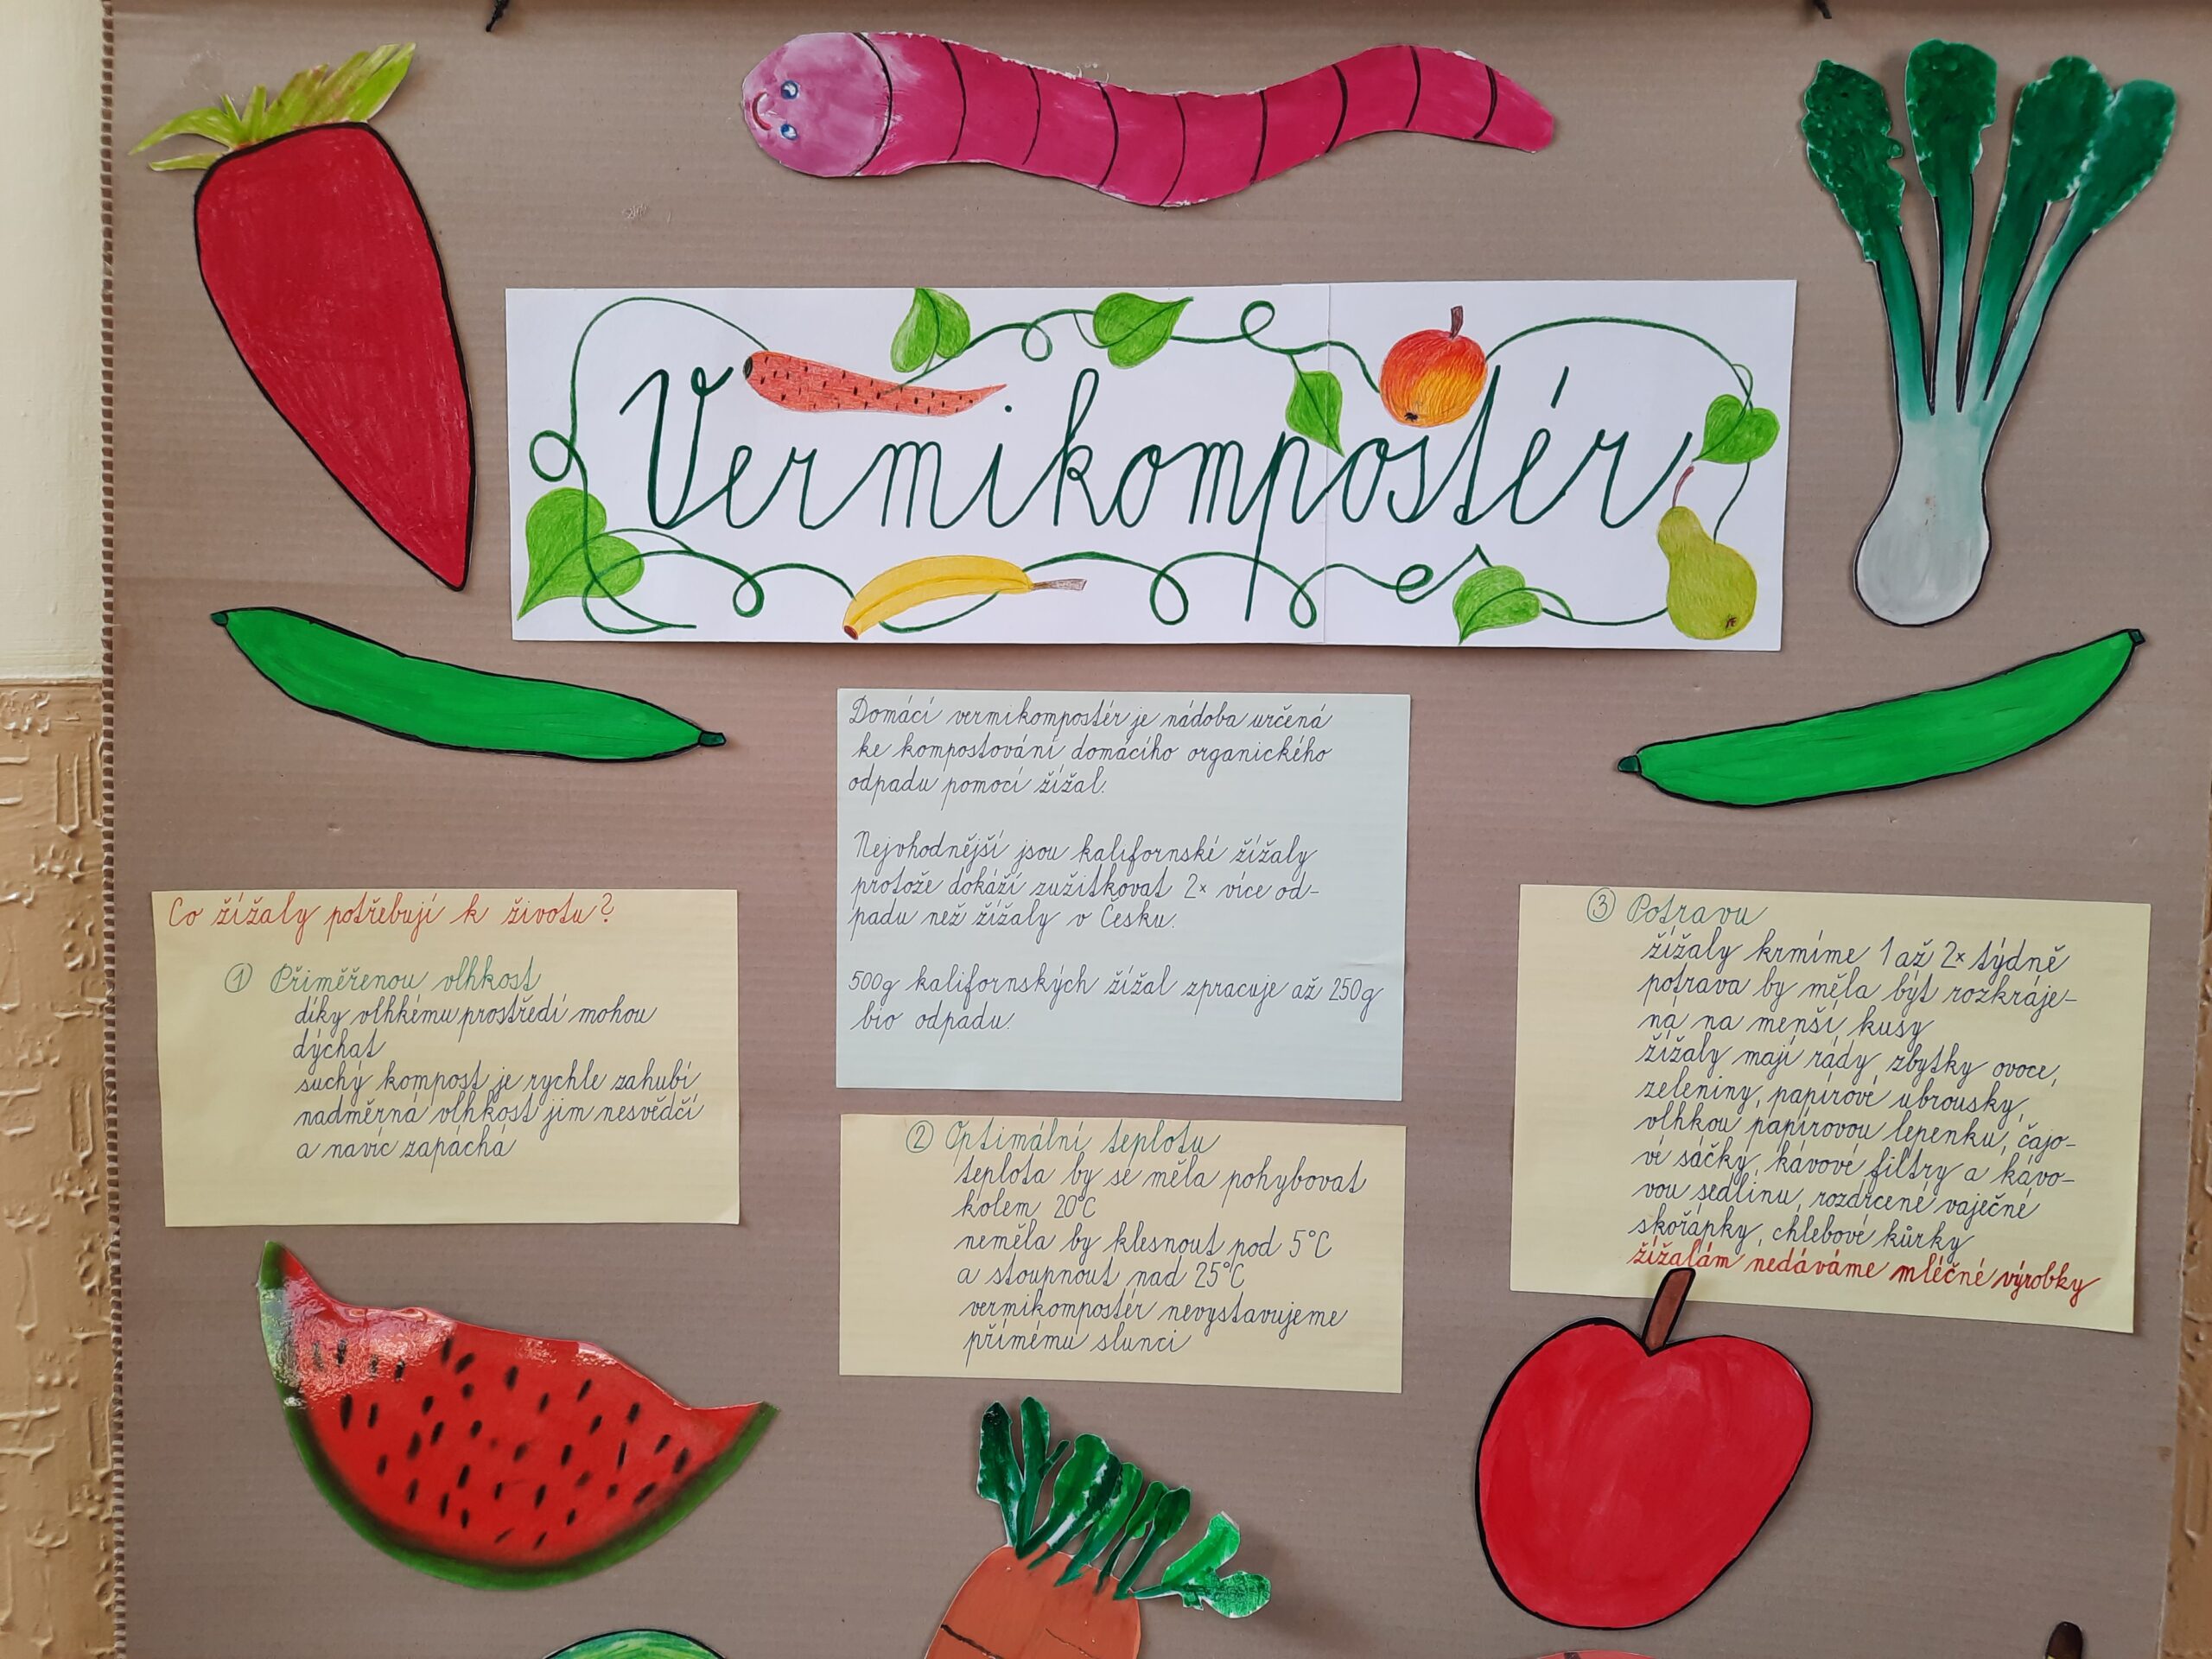 Vermikompostér
Domácí vermikompostér je nádoba určená
ke kompostování domácího organického
odpadu pomocí žížal.
Nejvhodnější jsou kalifornské žížaly
protože dokáží zužitkovat 2x více od-
padu než žížaly v Česku.
500g kalifornských žížal zpracuje až 250g
bio odpadu.
Co žížaly potřebují k životu?
① Přiměřenou vlhkost
díky vlhkému prostředí mohou
dýchat
suchý kompost je rychle zahubí
nadměrná vlhkost jim nesvědčí
a navíc zapáchá
② Optimální teplotu
teplota by se měla pohybovat
kolem 20°C
neměla by klesnout pod 5°C
a stoupnout nad 25°C
vermikompostér nevystavujeme
přímému slunci
③ Potravu
žížaly krmíme 1 až 2x týdně
potrava by měla být rozkráje-
na na menší kusy
žížaly mají rády zbytky ovoce,
zeleniny, papírové ubrousky,
vlhkou papírovou lepenku, čajo-
vé sáčky, kávové filtry a kávo-
vou sedlinu, rozdrcené vaječné
skořápky, chlebové kůrky
žížalám nedáváme mléčné výrobky